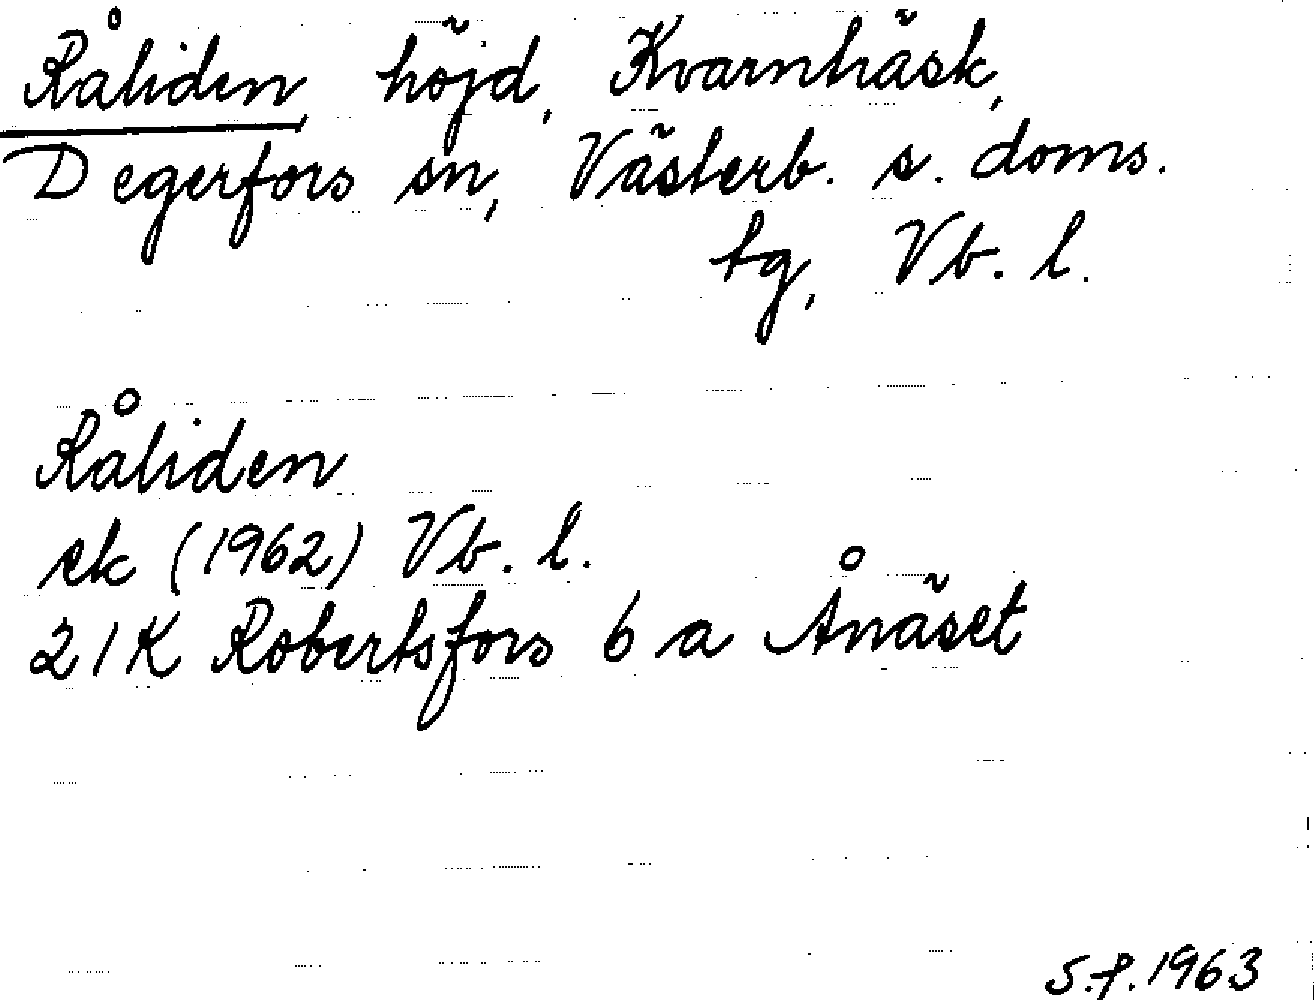 Råliden, höjd, Kvarnträsk,
Degerfors sn, Västerb. s. doms.
tg, Vb. l.
Råliden
ek (1962) Vb. l.
21K Robertsfors 6 a Ånäset
S.P. 1963